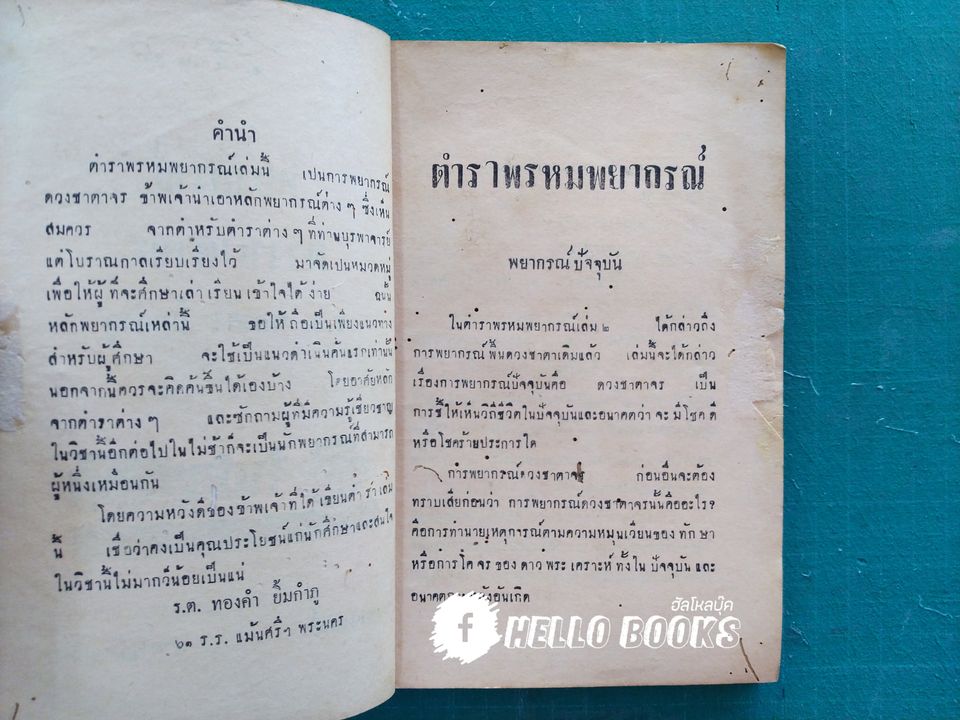 คำนำ
ตำราพรหมพยากรณ์เล่มนี้ เป็นการพยากรณ์
ดวงชาตาจร ข้าพเจ้านำเอาหลักพยากรณ์ต่าง ๆ ซึ่งเห็น
สมควร จากตำหรับตำราต่าง ๆ ที่ท่านบุรพาจารย์
แต่โบราณกาลเรียบเรียงไว้ มาจัดเป็นหมวดหมู่
เพื่อให้ผู้ที่จะศึกษาเล่าเรียนเข้าใจได้ง่าย ฉนั้น
หลักพยากรณ์เหล่านี้ ขอให้ถือเป็นเพียงแนวทาง
สำหรับผู้ศึกษา จะใช้เป็นแนวดำเนินค้นแรกเท่านั้น
นอกจากนี้ควรจะคิดค้นขึ้นได้เองบ้าง โดยอาศัยหลัก
จากตำราต่าง ๆ และซักถามผู้ที่มีความรู้เชี่ยวชาญ
ในวิชานี้อีกต่อไปในไม่ช้าก็จะเป็นนักพยากรณ์ที่สามารถ
ผู้หนึ่งเหมือนกัน
โดยความหวังดีของข้าพเจ้าที่ได้เขียนตำราเล่ม
นี้ เชื่อว่าคงเป็นคุณประโยชน์แก่นักศึกษาและสนใจ
ในวิชานี้ไม่มากก็น้อยเป็นแน่
ร.ต. ทองคำ ยิ้มกำภู
๖๑ ร.ร. แม้นศรีฯ พระนคร
ตำราพรหมพยากรณ์
พยากรณ์ปัจจุบัน
ในตำราพรหมพยากรณ์เล่ม ๒ ได้กล่าวถึง
การพยากรณ์พื้นดวงชาตาเดิมแล้ว เล่มนี้จะได้กล่าว
เรื่องการพยากรณ์ปัจจุบันคือ ดวงชาตาจร เป็น
การชี้ให้เห็นวิถีชีวิตในปัจจุบันและอนาคตว่า จะ มีโชคดี
หรือโชคร้ายประการใด
การพยากรณ์ดวงชาตาจร ก่อนอื่นจะต้อง
ทราบเสียก่อนว่า การพยากรณ์ดวงชาตาจรนั้นคืออะไร?
คือการทำนายเหตุการณ์ตามความหมุนเวียนของ ทักษา
หรือการโคจรของดาวพระเคราะห์ ทั้งในปัจจุบันและ
อนาคต อันเกิด
ฮัลโหลบุ๊ค
f HELLO BOOKS